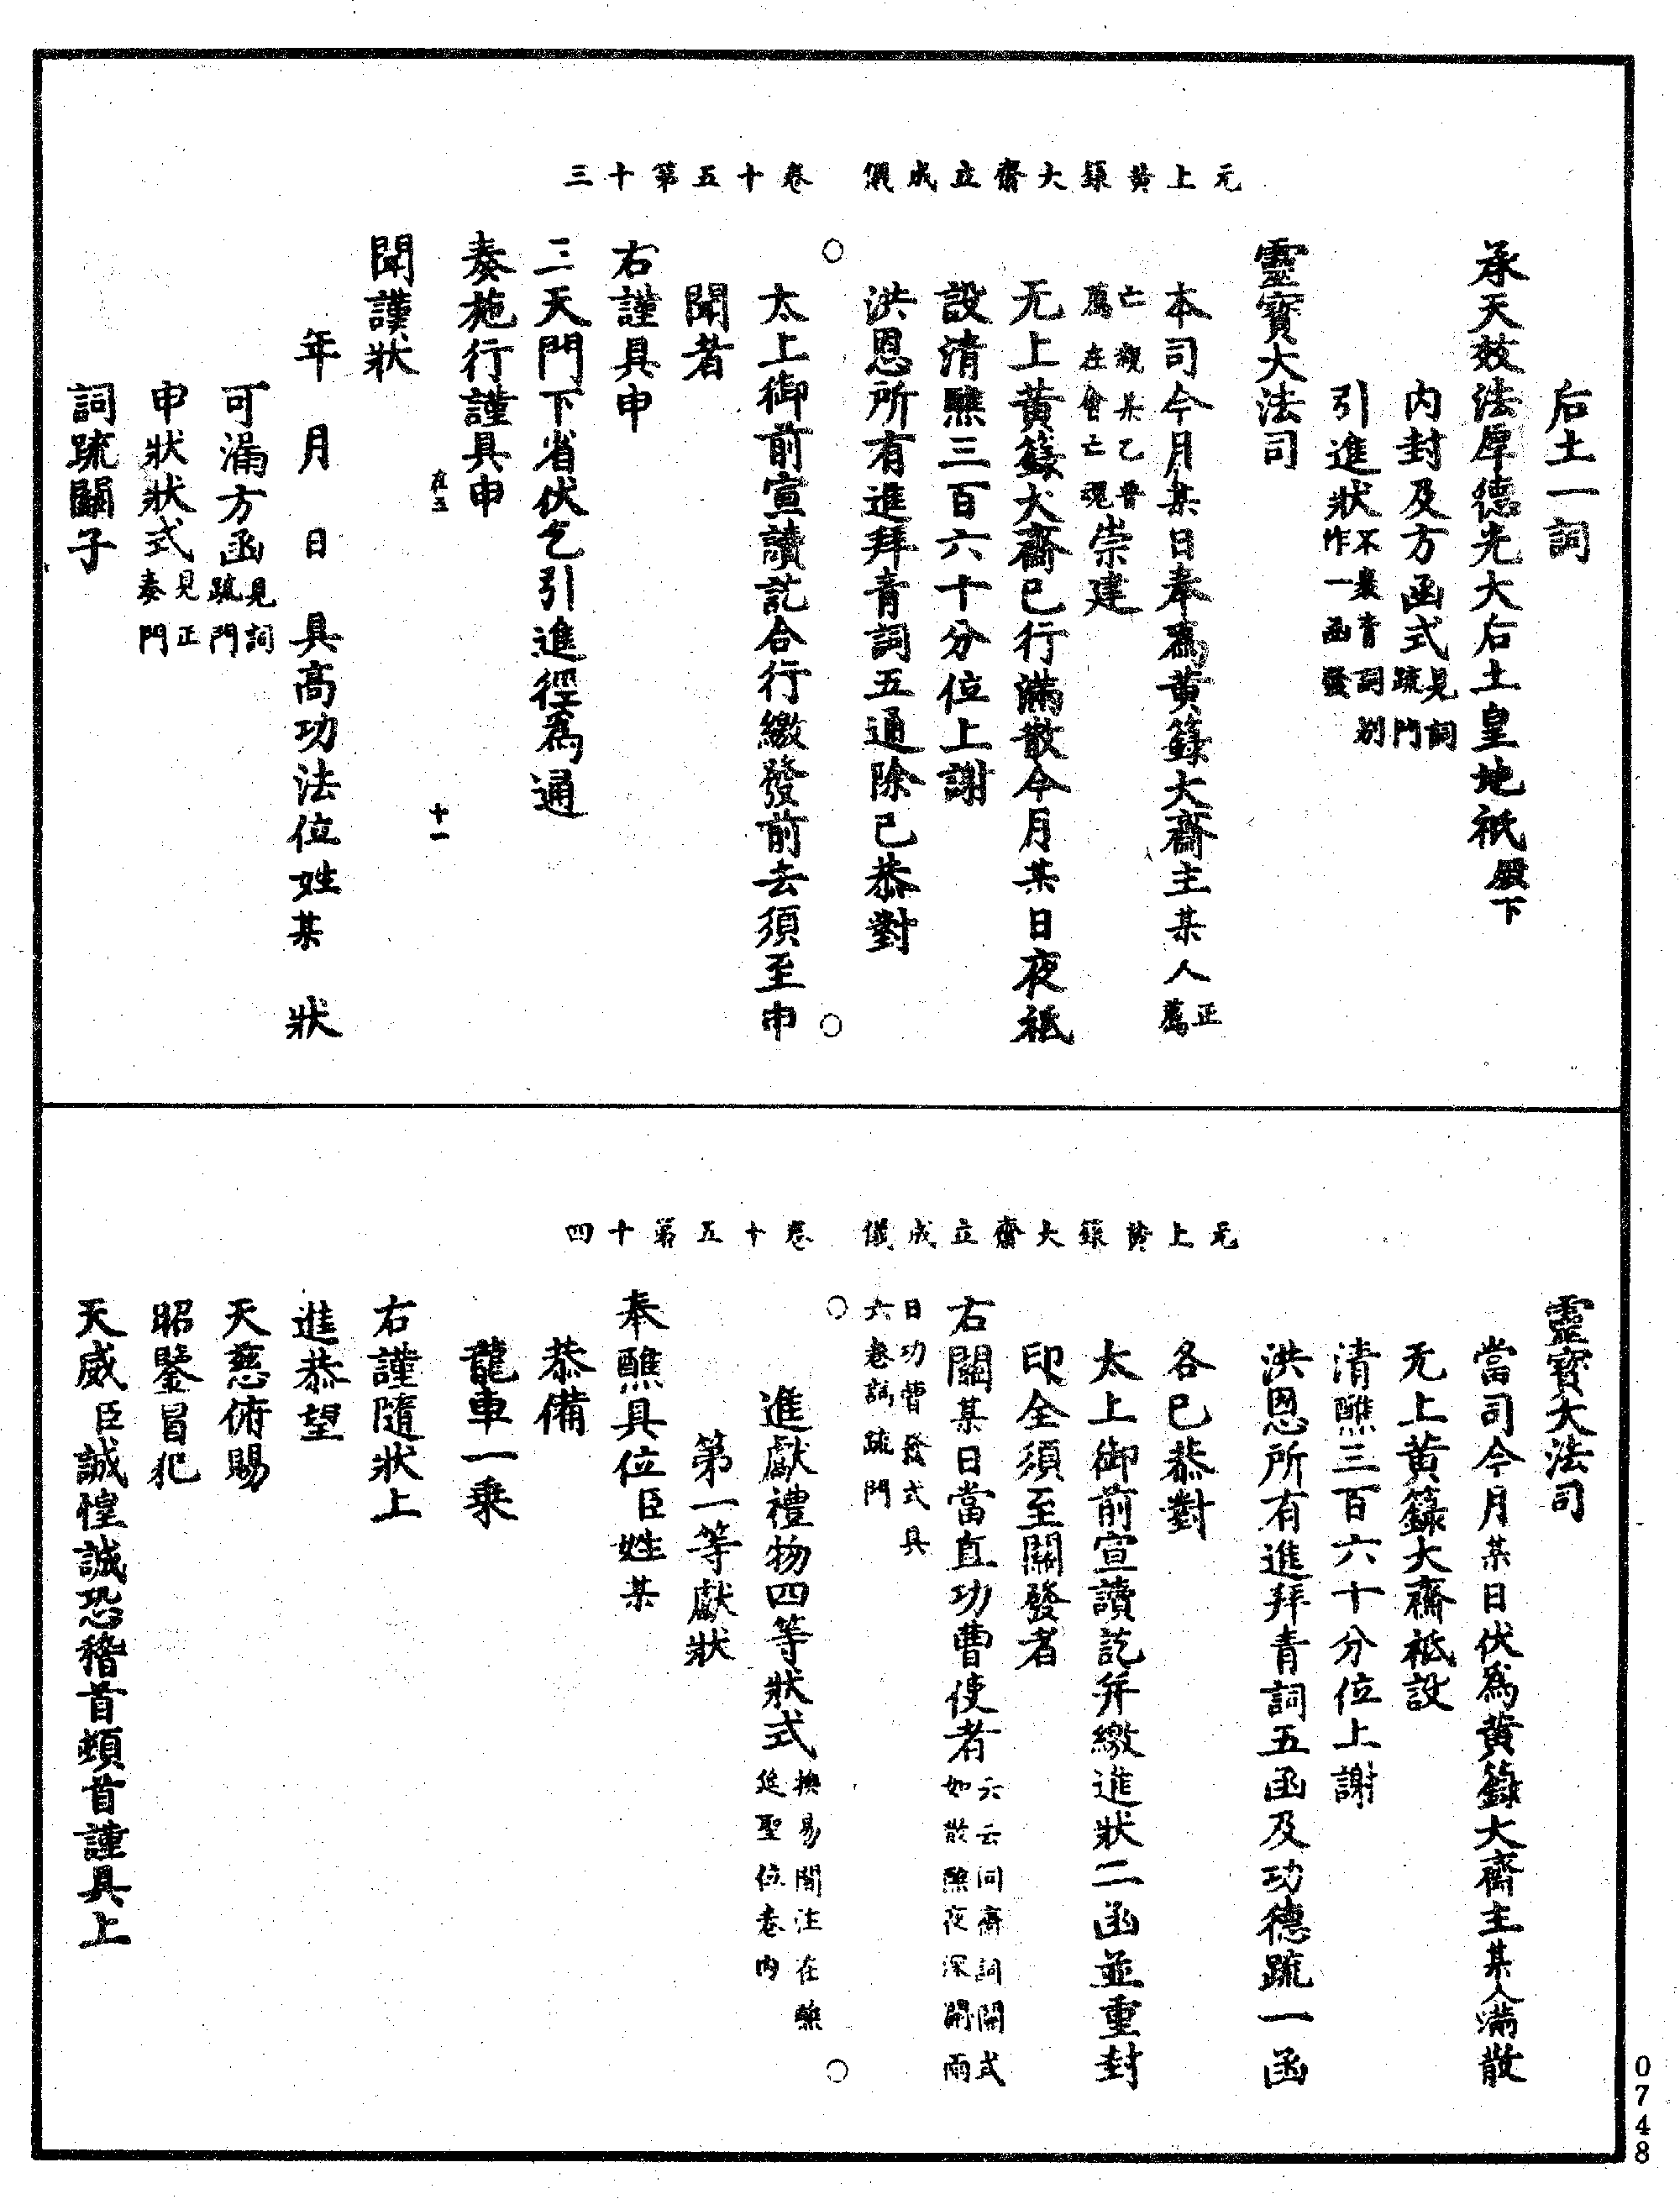 无上黃籙大齋立成儀 卷十五第十三
后土一詞
承天效法厚德光大后土皇地祇殿下
內封及方函式見詞疏門
引進狀不裹青詞別作一函發
靈寶大法司
本司今月某日奉爲黃籙大齋主某人正薦
亡親某乙普薦在會亡魂崇建
无上黃籙大齋已行滿散今月某日夜祗
設清醮三百六十分位上謝
洪恩所有進拜青詞五通除已恭對
太上御前宣讀訖合行繳發前去須至申
聞者
右謹具申
三天門下省伏乞引進徑爲通
奏施行謹具申
在五 十一
聞謹狀
年 月 日 具高功法位姓某 狀
可漏方函見詞疏門
申狀狀式見正奏門
詞疏關子
无上黃籙大齋立成儀 卷十五第十四
靈寶大法司
當司今月某日伏爲黃籙大齋主某人滿散
无上黃籙大齋祗設
清醮三百六十分位上謝
洪恩所有進拜青詞五函及功德疏一函
各已恭對
太上御前宣讀訖并繳進狀二函並重封
印全須至關發者
右關某日當直功曹使者云云同齋詞關式如散醮夜深關兩
日功曹發式具六卷詞疏門
進獻禮物四等狀式換易閤注在醮筵聖位卷內
第一等獻狀
奉醮具位臣姓某
恭備
龍車一乗
右謹隨狀上
進恭望
天慈俯賜
昭鑒冒犯
天威臣誠惶誠恐稽首頓首謹具上
0748